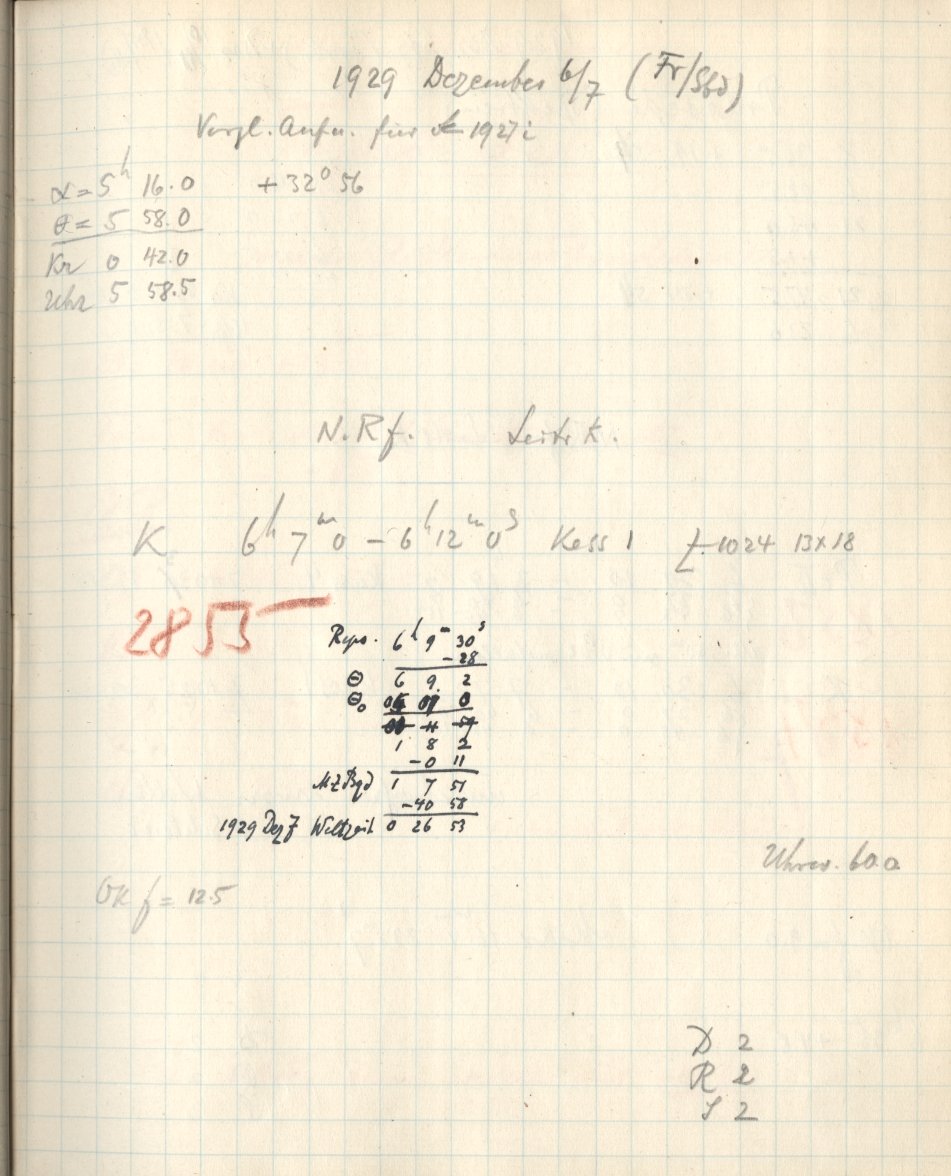 1929 Dezember 6/7 (Fr/Sbd)
Vergl. Aufn. für 1927 i
α = 5h 16.0 +32° 56
θ = 5 58.0
Kr 0 42.0
Uhr 5 58.5
N. Rf. Leitr K.
K 6h 7m 0 – 6h 12m 0s Kass 1 Z 1024 13x18
2855
Repr. 6h 9m 30s
-28
Θ 6 9 2
Θ₀ 0
1 8 2
-0 11
MZ Bgd 1 7 51
-40 58
1929 Dez 7 Weltzeit 0 26 53
Uhrv. 60.0
OK f = 12.5
D 2
R 2
S 2